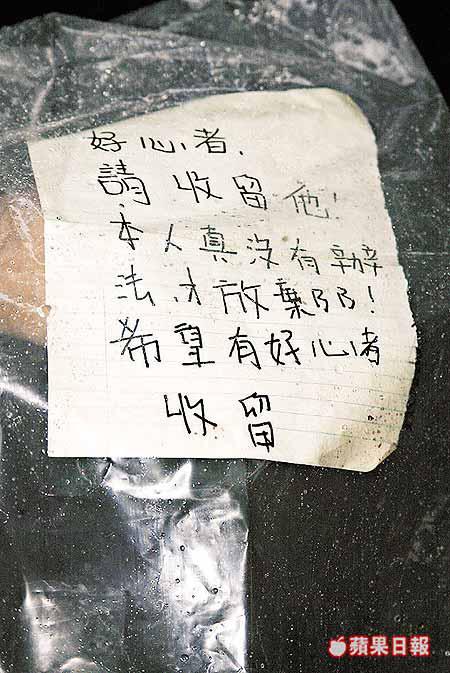 好心者.
請收留他!
本人真沒有辦
法才放棄!
希望有好心者
收留
蘋果日報